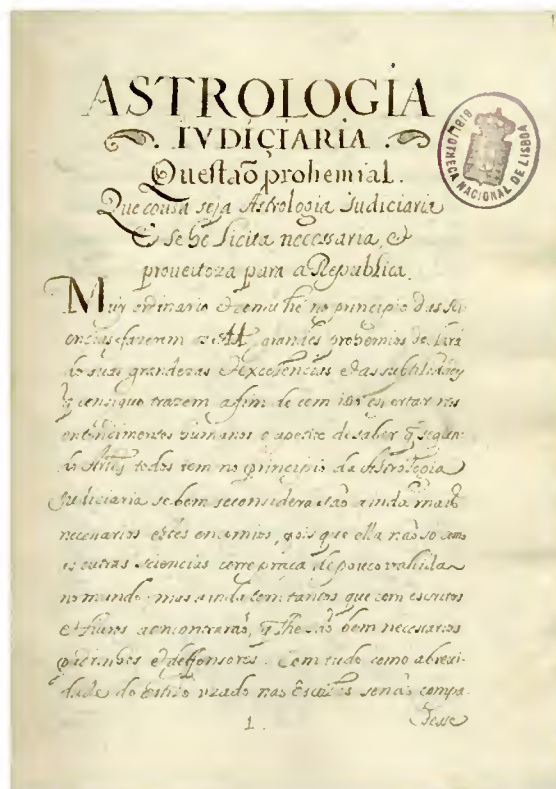 ASTROLOGIA
IVDIÇIARIA
Questaõ prohemial.
Que cousa seja Astrologia Judiciaria
& se he licita necessaria, &
proueitoza para a Republica.
Muy ordinario & comu he no principio das sci
encias fazerem os AA. grandes prohemios de
suas grandezas & excelencias & das subtilidades
q̃ consiquo trazem a fim de com isso espertar nos
entendimentos humanos o apetite de saber q̃ segun
do Artes todos tem no principio da Astrologia
Judiciaria se bem seconsidera saõ ainda mais
necessarios estes encomios, pois que ella naõ so como
as outras sciencias corre praça de pouco valida
no mundo. mas ainda tem tantos que com escritos
& liuros a encontraraõ, q̃ lhe saõ bem necessarios
padrinhos & deffensores. Com tudo como a breui-
dade do estillo vzado nas Escolas senaõ compa
1.
desse
BIBLIOTHECA NACIONAL DE LISBOA